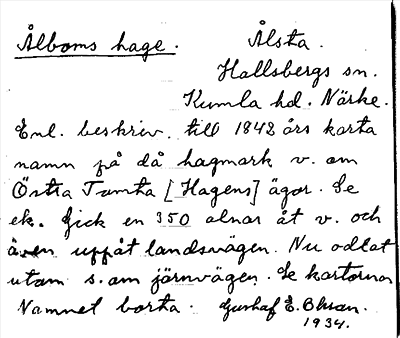 Ålboms hage. Ålsta.
Hallsbergs sn.
Kumla hd. Närke.
Enl. beskriv. till 1842 års karta
namn på då hagmark v. om
Östra Tomta [Hagens] ägor. Se
ek. Gick en 350 alnar åt v. och
även uppåt landsvägen. Nu odlat
utom s. om järnvägen. Se kartorna
Namnet borta. Gustaf E. Ohson.
1934.